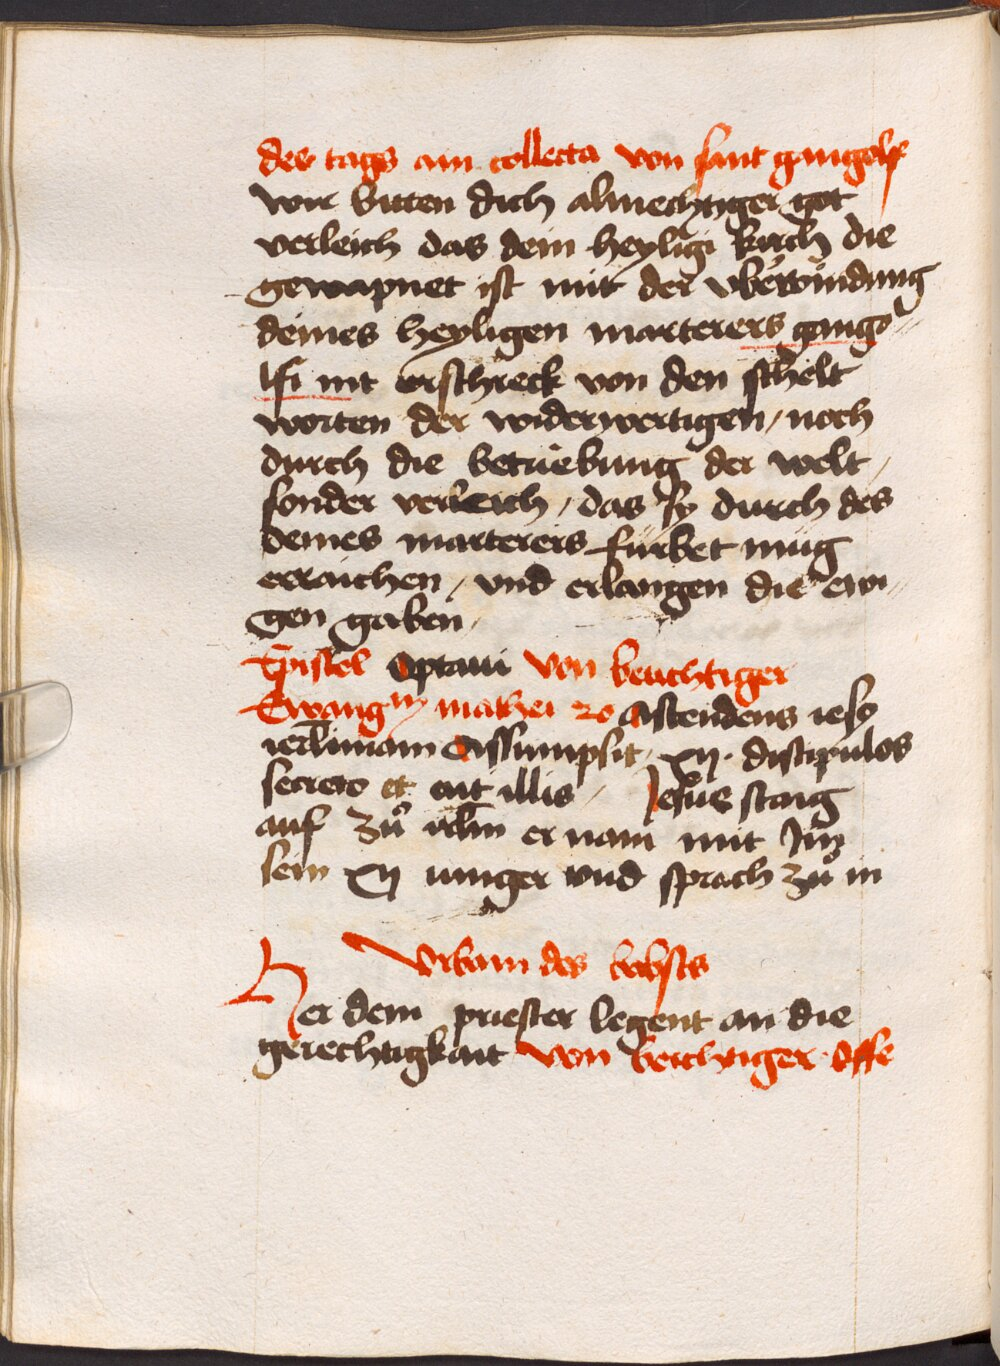 des tags ain collecta von sant gangolf
wir bitten dich almechtiger got
verleich das dein heyligi kirch die
gewapnet ist mit der vberwindung
deines heyligen marterers gango
lfi nit erschreck von den schelt
worten der widerwertigen / noch
durch die betrüebung der welt /
sonder verleich / das sy durch des
deines marterers fürbet müg
erraichen / vnd erlangen die ewi
gen gaben /
Epistel Optaui von beuchtiger
Ewangm mathei 20 Ascendens iesq
ierlimam Assumpsit xij discipulos
secreto et ait illis / Jesus staig
auf zů irlm er nam mit Jm
sein xij iunger vnd sprach zů in
Vrbani des babsts
Her dein priester legent an die
gerechtigkait von beichtiger Offe